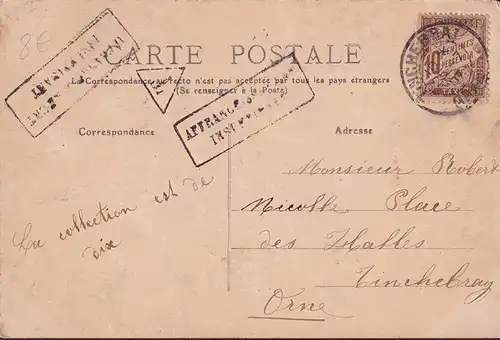 8€
CARTE POSTALE
La Correspondance au recto n'est pas acceptée par tous les pays étrangers
(Se renseigner à la Poste)
AFFRANCHISSEMENT
INSUFFISANT
AFFRANCHISSEMENT
INSUFFISANT
T
10 CENTIMES
A PERCEVOIR
TINCHEBRAY
Correspondance
Adresse
La collection est de
dix
Monsieur Robert
Nicolle Place
des Halles
Tinchebray
Orne